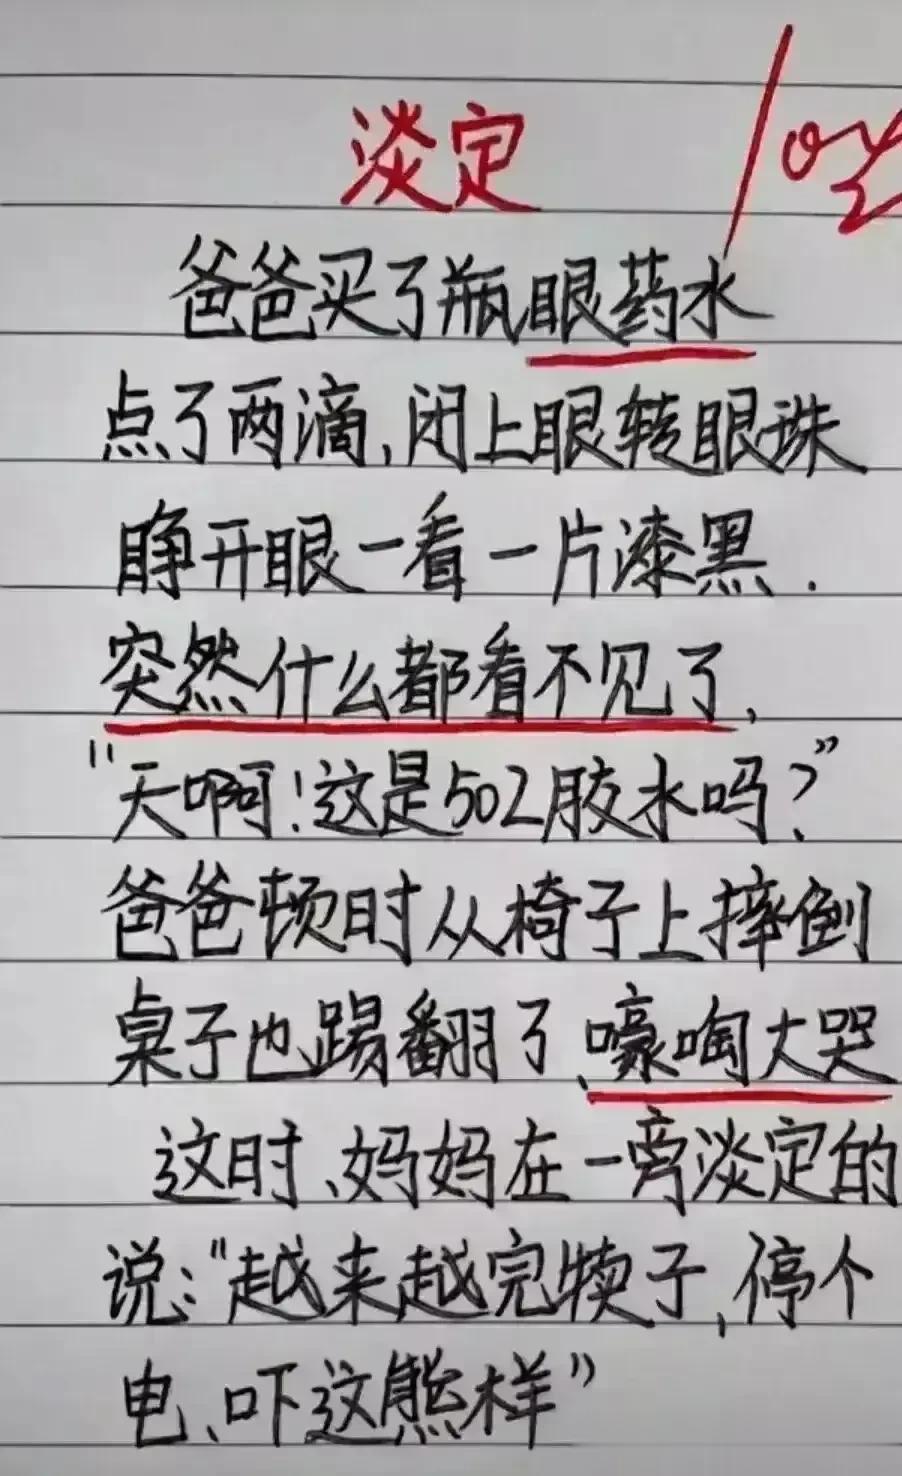 淡定
爸爸买了瓶眼药水
点了两滴,闭上眼转眼珠
睁开眼一看一片漆黑.
突然什么都看不见了,
"天啊!这是502胶水吗?"
爸爸顿时从椅子上摔倒
桌子也踢翻了、嚎啕大哭
这时、妈妈在一旁淡定的
说:"越来越完犊子,停个
电、吓这熊样"